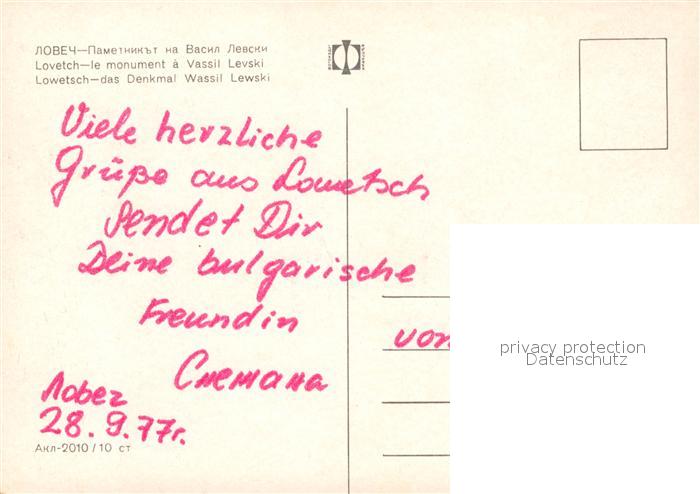 ЛОВЕЧ—Паметникът на Васил Левски
Lovetch—le monument à Vassil Levski
Lowetsch—das Denkmal Wassil Lewski
Viele herzliche
Grüße aus Lowetsch
sendet Dir
Deine bulgarische
Freundin
Снежана
Ловеч
28.9.77г.
Акл-2010/10 ст
von
privacy protection
Datenschutz